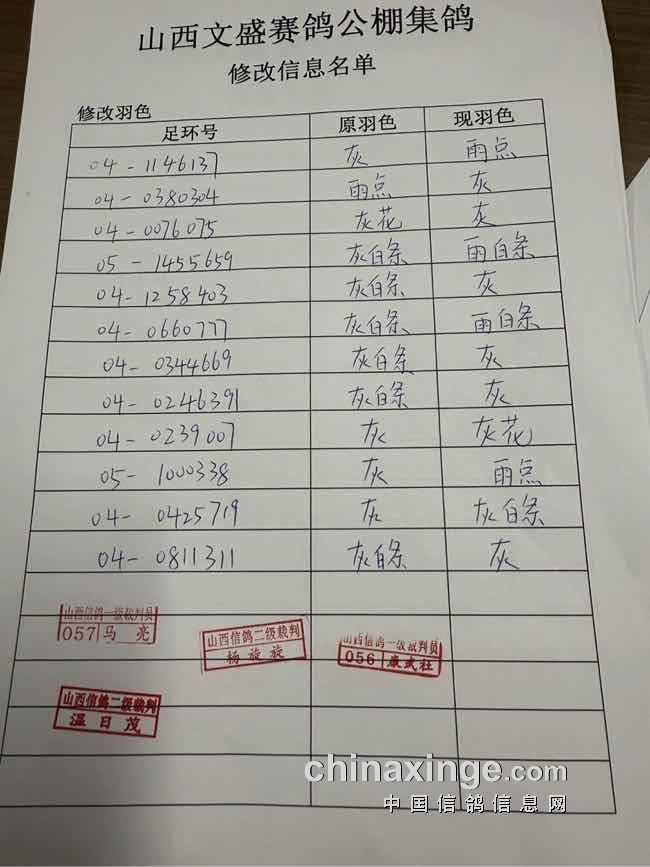 山西文盛赛鸽公棚集鸽
修改信息名单
修改羽色
足环号 原羽色 现羽色
04-1146137 灰 雨点
04-0380304 雨点 灰
04-0076075 灰花 灰
05-1455659 灰白条 雨白条
04-1258403 灰白条 灰
04-0660777 灰白条 雨白条
04-0344669 灰白条 灰
04-0246391 灰白条 灰
04-0239007 灰 灰花
05-1000338 灰 雨点
04-0425719 灰 灰白条
04-0811311 灰白条 灰
山西信鸽一级裁判员
057 马亮
山西信鸽二级裁判
杨旋旋
山西信鸽一级裁判员
056 康武社
山西信鸽二级裁判
温日茂
chinaxinge.com
中国信鸽信息网